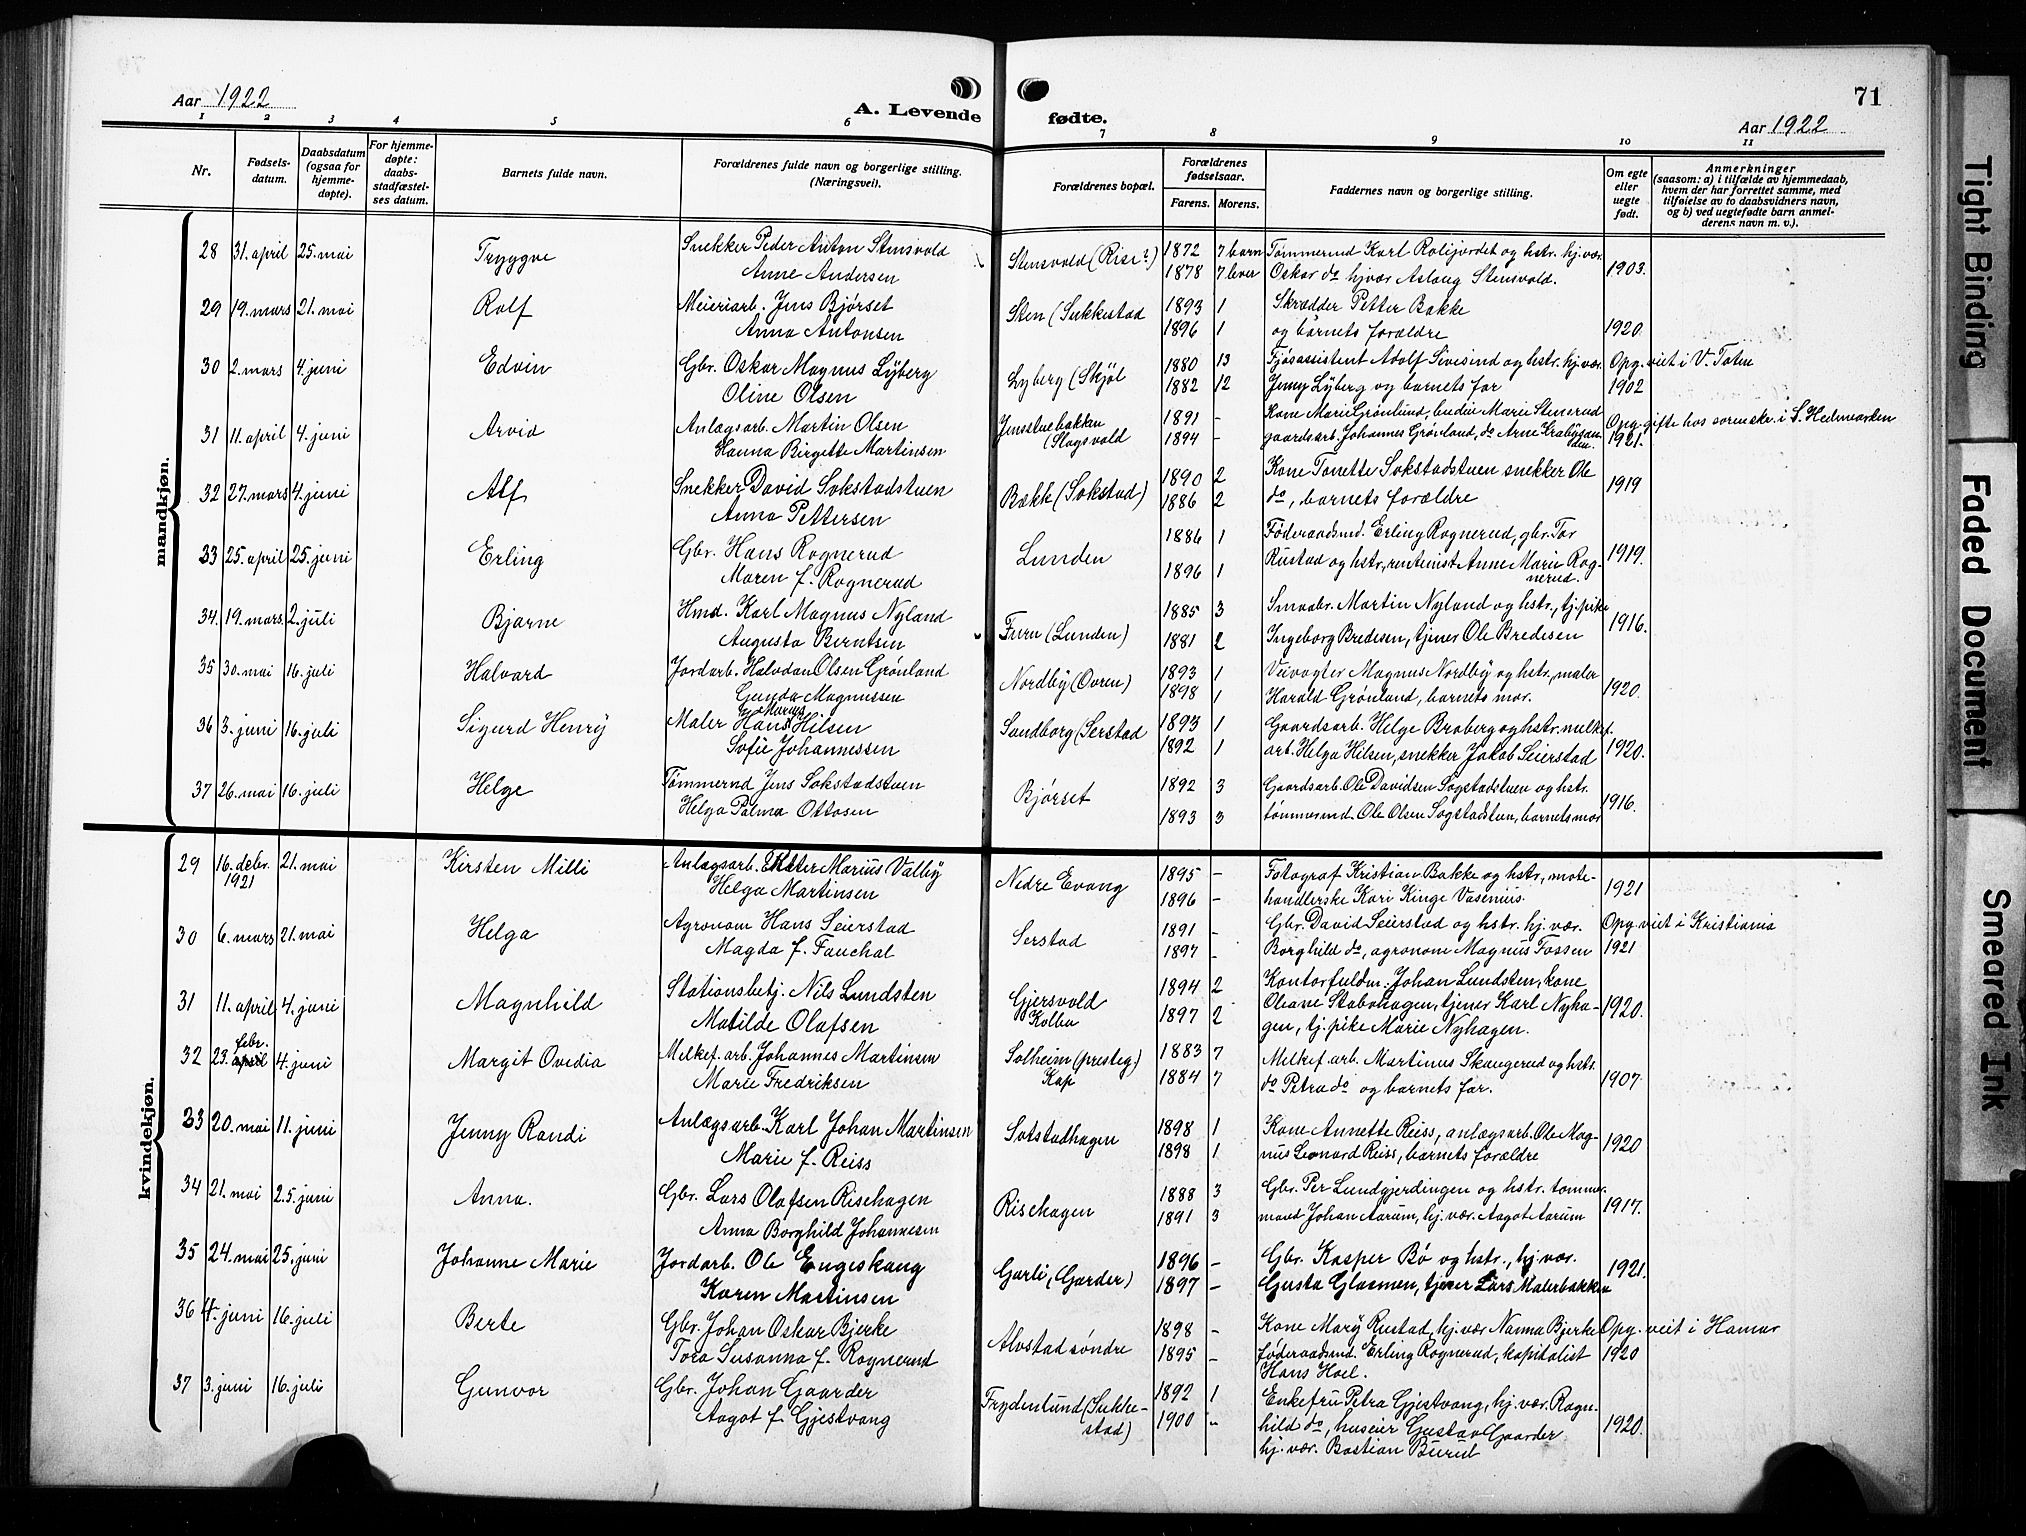 71
Aar 1922
A. Levende fødte.
Aar 1922
1 2 3 4 5 6 7 8 9 10 11
Nr.
Fødsels-
datum.
Daabsdatum
(ogsaa for
hjemme-
døpte).
For hjemme-
døpte:
daabs-
stadfæstel-
ses datum.
Barnets fulde navn.
Forældrenes fulde navn og borgerlige stilling.
(Næringsvei).
Forældrenes bopæl.
Forældrenes
fødselsaar.
Farens. Morens.
Faddernes navn og borgerlige stilling.
Om egte
eller
uegte
født.
Anmerkninger
(saasom: a) i tilfælde av hjemmedaab,
hvem der har forrettet samme, med
tilføielse av to daabsvidners navn,
og b) ved uegtefødte barn anmel-
derens navn m. v.).
mandkjøn.
28 31. april 25. mai Trygve Snekker Peder Anton Stensvold Stensvold (Risi?) 1872 7 barn Tømmermd Karl Roligjordet og hstr. hj.vær.
Anne Andersen 1878 7 lever Oskar do hj.vær Aslaug Stensvold. 1903.
29 19. mars 21. mai Rolf Meieriarb. Jens Bjørset Sten (Sukkestad 1893 1 Skrædder Petter Bakke
Anna Antonsen 1896 1 og barnets forældre 1920.
30 2. mars 4. juni Edvin Gbr. Oskar Magnus Lyberg Lyberg (Skjøl 1880 13 Fjøsassistent Adolf Sivesind og hstr. hj.vær. Opg. viet i V. Toten
Oline Olsen 1882 12 Jenny Lyberg og barnets far 1902
31 11. april 4. juni Arvid Anlægsarb. Martin Olsen Jensstuebakken 1891 - Kone Marie Grønlund, budeie Marie Stenerud Opg. gifte hos sorenskr. i S. Hedmarken
Hanna Birgette Martinsen (Slagsvold 1894 - gaardsarb. Johannes Grønland, do Arne 1921.
32 27. mars 4. juni Alf Snekker David Sokstadstuen Bække (Sokstad) 1890 2 Kone Tonette Sokstadstuen snekker Ole 1919
Anna Pettersen 1886 2 do, barnets forældre
33 25. april 25. juni Erling Gbr. Hans Rognerud Lunden 1886 1 Føderaadsmd. Erling Rognerud, gbr. Tor
Maren f. Rognerud 1896 1 Rustad og hstr., rentenist Anne Marie Rog- 1919.
nerud.
34. 19. mars. 2. juli Bjarne Hmd. Karl Magnus Nyland Furu (Lunden) 1885 3 Smaabr. Martin Nyland og hstr., tj.pike
Augusta Berntsen 1881 2 Ingeborg Bredesen, tjener Ole Bredesen 1916.
35 30. mai 16. juli Halvard Jordarb. Halvdan Olsen Grønland Nordby (Ovren) 1893 1 Veivogter Magnus Nordby og hstr., maler
Gunda Magnussen 1898 1 Harald Grønland, barnets mor. 1920.
36 3. juni 16. juli Sigurd Henry Maler Hans Marius Hilsen Sandborg (Serstad 1893 1 Gaardsarb. Helge Braberg og hstr. melkef.
Sofie Johannessen 1892 1 arb. Helga Hilsen, snekker Jakob Seierstad 1920.
37 26. mai 16. juli Helge Tømmermd Jens Sokstadstuen Bjørset 1892 3 Gaardsarb. Ole Davidsen Sogstadstuen og hstr.
Helga Palma Ottosen 1893 3 tømmermd. Ole Olsen Sogstadstuen, barnets mor 1916.
kvindekjøn.
29 16. debr. 1921 21. mai Kirsten Milli Anlægsarb. Petter Marius Valby Nedre Evang 1895 - Fotograf Kristian Bakke og hstr., mote-
Helga Martinsen 1896 - handlerske Kari Kinge Vasenius. 1921
30 6. mars 21. mai Helga Agronom Hans Seierstad Serstad 1891 - Gbr. David Seierstad og hstr. hj. vær. Opg. viet i Kristiania
Magda f. Fauchal 1897 - Borghild do, agronom Magnus Fossen 1921
31 11. april 4. juni Magnhild Stationsbetj. Nils Lundsten Gjersvold 1894 2 Kontorfuldm. Johan Lundsten, kone
Matilde Olafsen Kolbu 1897 2 Oleane Stabohagen, tjener Karl Nyha- 1920.
gen, tj. pike Marie Nyhagen.
32 23. april febr. 4. juni Margit Ovidia Melkef. arb. Johannes Martinsen Solheim (presteg) 1883 7 Melkef. arb. Martinus Skaugerud og hstr.
Marie Fredriksen Kap 1884 7 do Petra do og barnets far. 1907.
33 20. mai 11. juni Jenny Randi Anlægsarb. Karl Johan Martinsen Sotstadhagen 1898 1 Kone Annette Reiss, anlægsarb. Ole Mag-
Marie f. Reiss 1898 1 nus Leonard Reiss, barnets forældre 1920
34 21. mai 25. juni Anna. Gbr. Lars Olafsen Risehagen Risehagen 1888 3 Gbr. Per Lundgjerdingen og hstr. tømmer-
Anna Borghild Johannesen 1891 3 mand Johan Aarum, hj. vær. Aagot Aarum 1917.
35 24. mai 25. juni Johanne Marie Jordarb. Ole Engeskaug Garli, (Garder) 1896 - Gbr. Kasper Bø og hstr., hj. vær.
Karen Martinsen 1897 - Gusta Glasmen, tjener Lars Malerbakken 1921.
36 4. juni 16. juli Berte Gbr. Johan Oskar Bjerke Alvstad søndre 1898 - Kone Mary Rustad, hj. vær Nanna Bjerke Opg. viet i Hamar
Tora Susanna f. Rognerud 1895 - føderaadsmd. Erling Rognerud, kapitalist 1920
Hans Hoel.
37 3. juni 16. juli Gunvor Gbr. Johan Gaarder Frydenlund (Sukke- 1892 1 Enkefru Petra Gjestvang, hj. vær. Ragn-
Aagot f. Gjestvang stad) 1900 - hild do, huseier Gustav Gaarder 1920.
hj. vær. Bastian Burud
Tight Binding
Faded Document
Smeared Ink